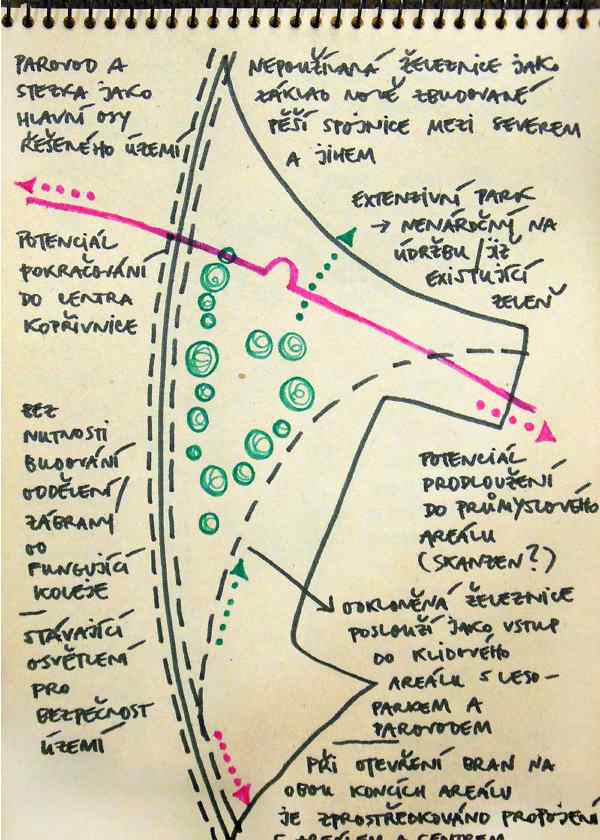 PAROVOD A
STEZKA JAKO
HLAVNÍ OSY
ŘEŠENÉHO ÚZEMÍ
NEPOUŽÍVANÁ ŽELEZNICE JAKO
ZÁKLAD NOVĚ ZBUDOVANÉ
PĚŠÍ SPOJNICE MEZI SEVEREM
A JIHEM
EXTENZIVNÍ PARK
→ NENÁROČNÝ NA
ÚDRŽBU / JIŽ
EXISTUJÍCÍ
ZELEŇ
POTENCIÁL
POKRAČOVÁNÍ
DO CENTRA
KOPŘIVNICE
BEZ
NUTNOSTI
BUDOVÁNÍ
ODDĚLENÍ/
ZÁBRANY
OD
FUNGUJÍCÍ
KOLEJE
—
STÁVAJÍCÍ
OSVĚTLENÍ
PRO
BEZPEČNOST
ÚZEMÍ
POTENCIÁL
PRODLOUŽENÍ
DO PRŮMYSLOVÉHO
AREÁLU
(SKANZEN?)
ODKLONĚNÁ ŽELEZNICE
POSLOUŽÍ JAKO VSTUP
DO KLIDOVÉHO
AREÁLU S LESO-
PARKEM A
PAROVODEM
PŘI OTEVŘENÍ BRAN NA
OBOU KONCÍCH AREÁLU
JE ZPROSTŘEDKOVÁNO PROPOJENÍ
S AREÁLEM A CENTREM